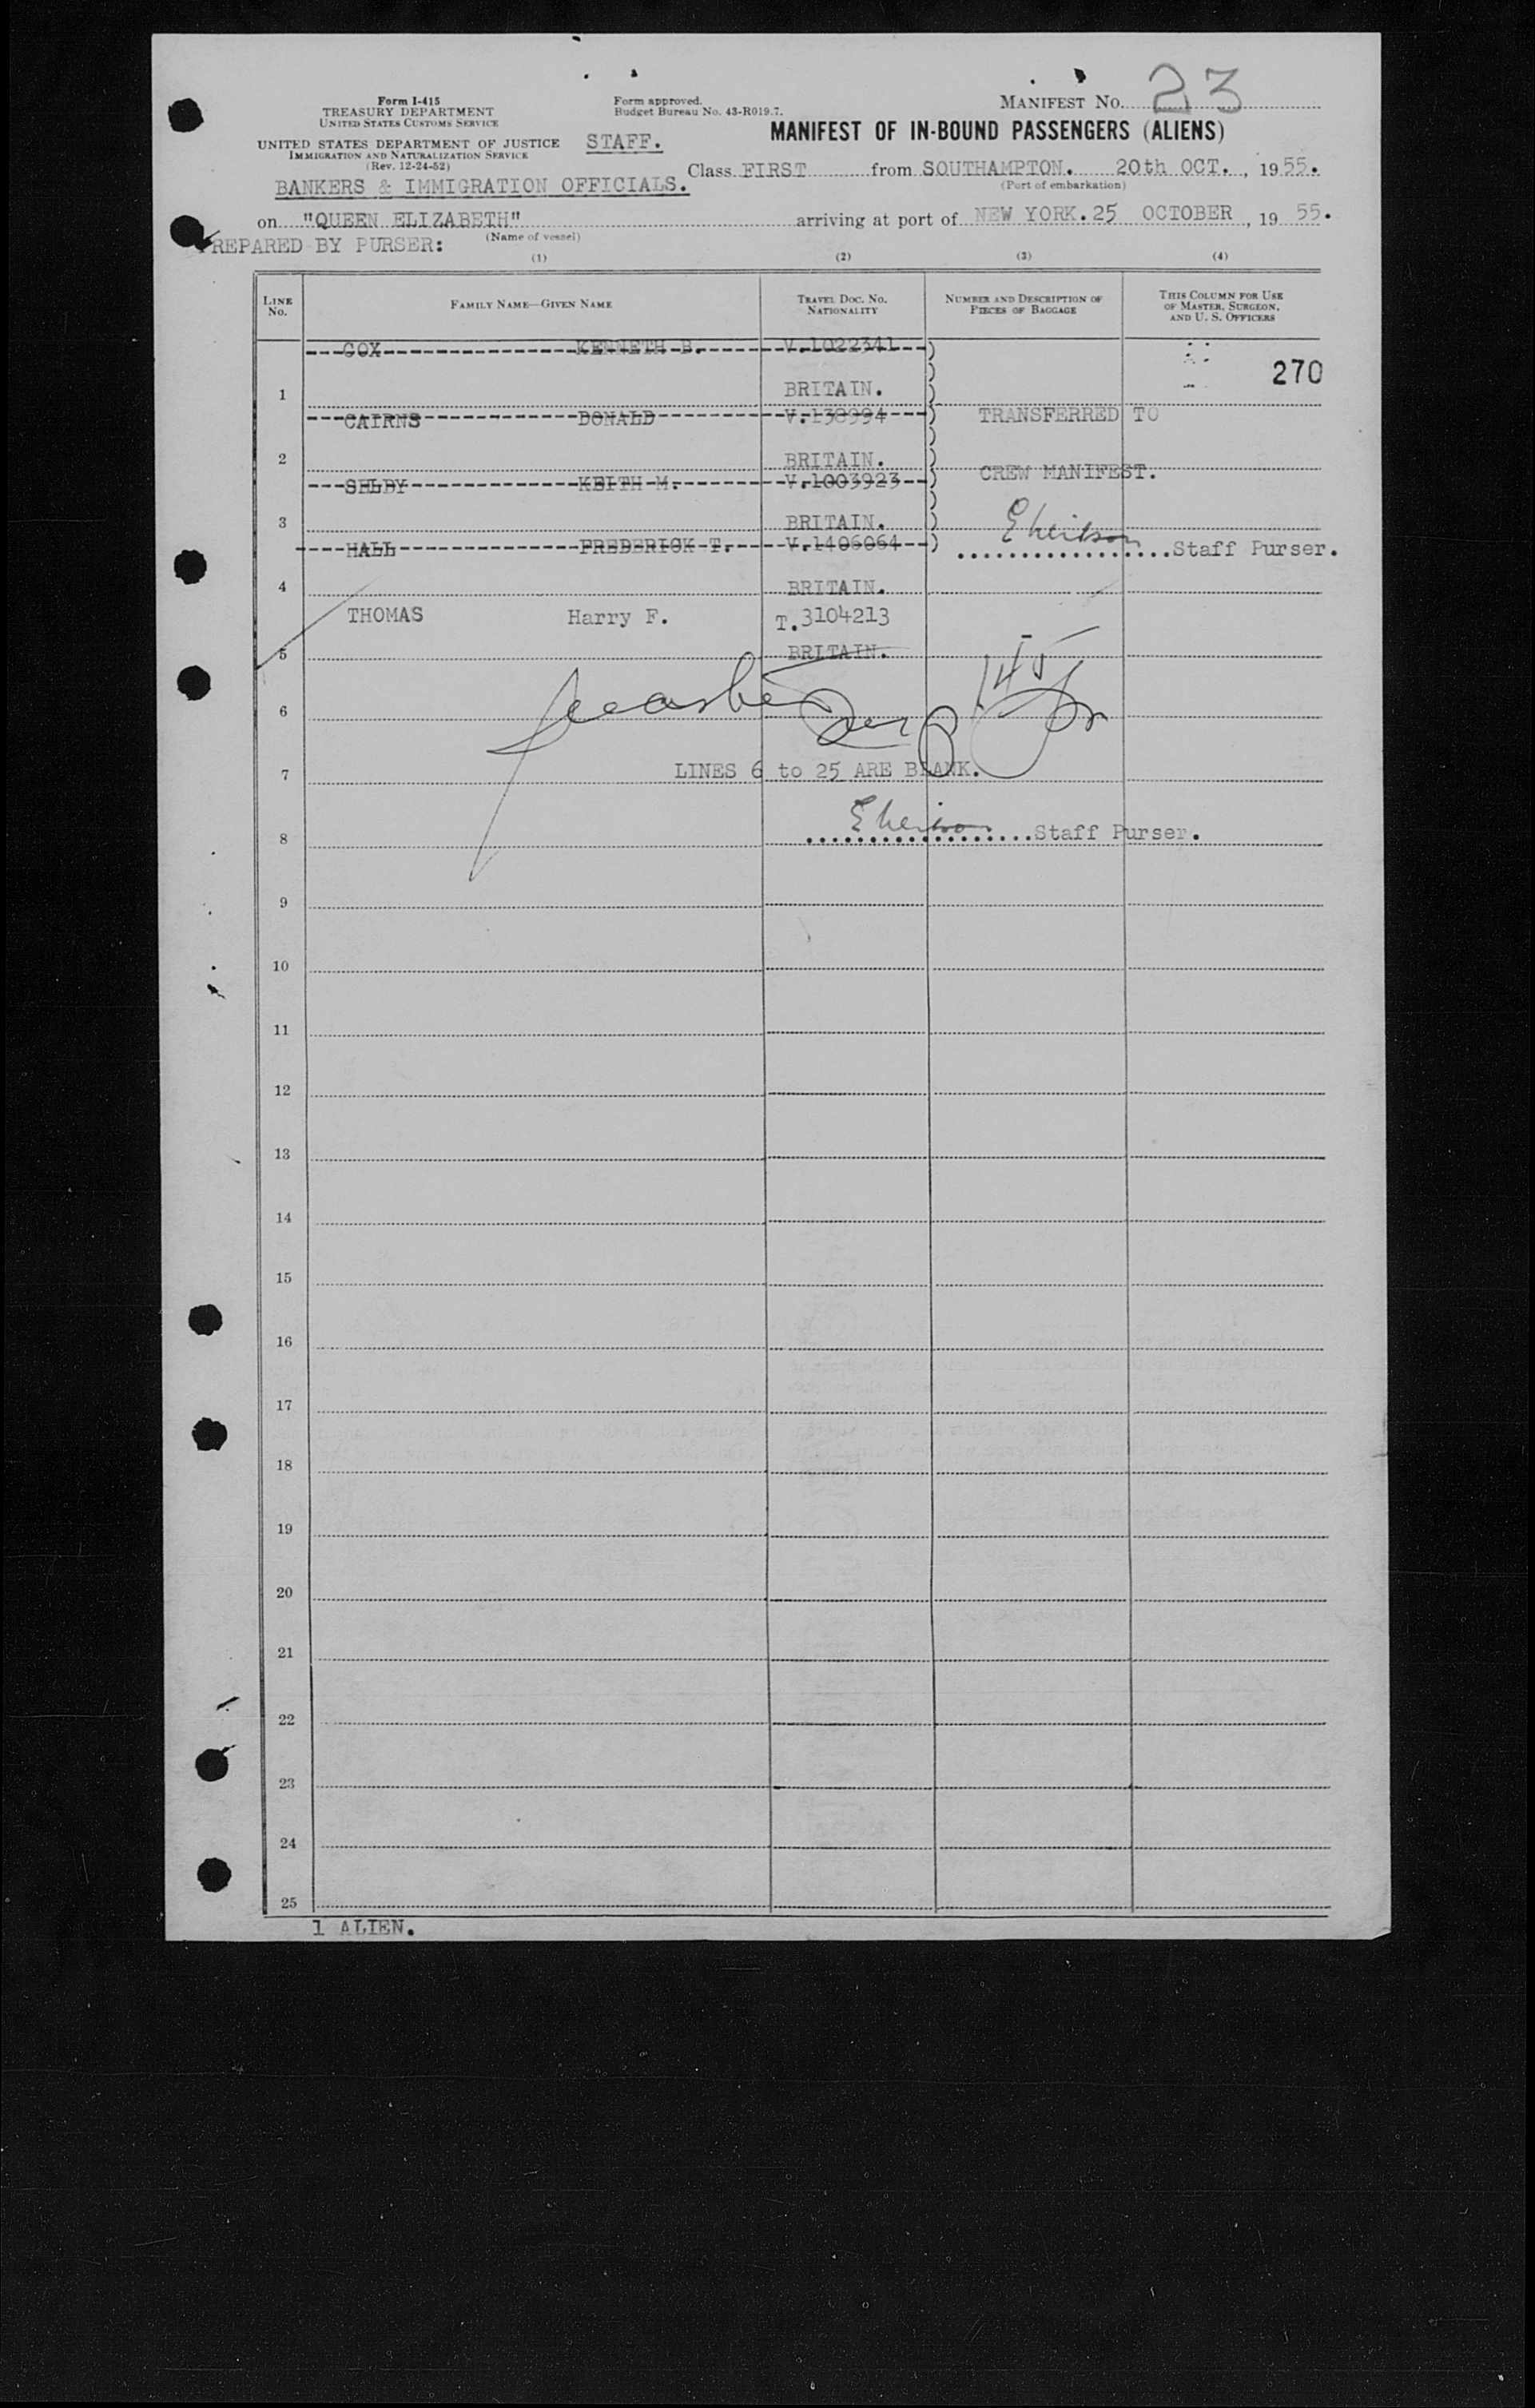 MANIFEST NO. 23
Form I-415
TREASURY DEPARTMENT
UNITED STATES CUSTOMS SERVICE
UNITED STATES DEPARTMENT OF JUSTICE
IMMIGRATION AND NATURALIZATION SERVICE
(Rev. 12-24-52)
Form approved.
Budget Bureau No. 43-R019.7.
STAFF.
MANIFEST OF IN-BOUND PASSENGERS (ALIENS)
BANKERS & IMMIGRATION OFFICIALS.
Class FIRST from SOUTHAMPTON. 20th OCT., 1955.
(Port of embarkation)
on "QUEEN ELIZABETH" arriving at port of NEW YORK. 25 OCTOBER, 1955.
(Name of vessel)
PREPARED BY PURSER:
(1) (2) (3) (4)
LINE No. FAMILY NAME—GIVEN NAME TRAVEL DOC. NO. NATIONALITY NUMBER AND DESCRIPTION OF PIECES OF BAGGAGE THIS COLUMN FOR USE OF MASTER, SURGEON, AND U. S. OFFICERS
COX KENNETH B. V.1022341 )
270
1 BRITAIN. )
CAIRNS DONALD V.138994 ) TRANSFERRED TO
2 BRITAIN. ) CREW MANIFEST.
SELBY KEITH M. V.1003923 )
3 BRITAIN. )
HALL FREDERICK T. V.1406064 ) Staff Purser.
4 BRITAIN.
THOMAS Harry F. T.3104213
5 BRITAIN.
145
6
LINES 6 to 25 ARE BLANK.
7
Staff Purser.
8
9
10
11
12
13
14
15
16
17
18
19
20
21
22
23
24
25
1 ALIEN.